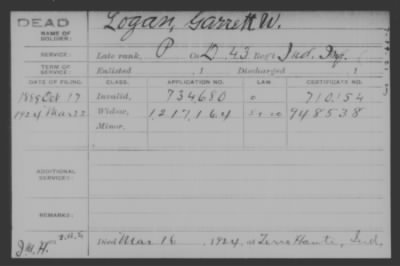 DEAD
NAME OF SOLDIER: Logan, Garrett W.
SERVICE: Late rank, P Co. D, 43 Reg't Ind. Inf.
TERM OF SERVICE: Enlisted , 1 Discharged , 1
DATE OF FILING. CLASS. APPLICATION NO. LAW. CERTIFICATE NO.
1889 Oct 17 Invalid, 734,680 710,154
1924 Mar 22 Widow, 1217,164 948538
Minor,
ADDITIONAL SERVICES:
REMARKS:
Died Mar 18, 1924, at Terre Haute, Ind.